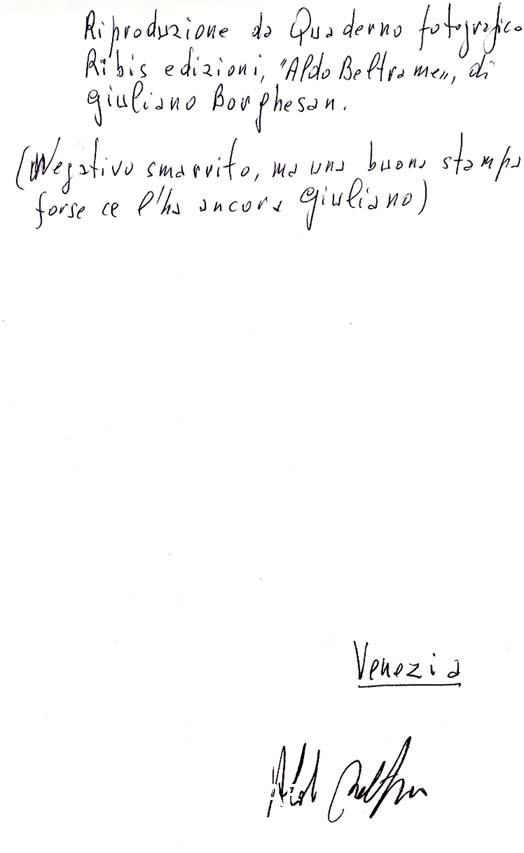 Riproduzione da Quaderno fotografico
Ribis edizioni, "Aldo Beltrame", di
Giuliano Borghesan.
(Negativo smarrito, ma una buona stampa
forse ce l'ha ancora Giuliano)
Venezia
Aldo Beltrame